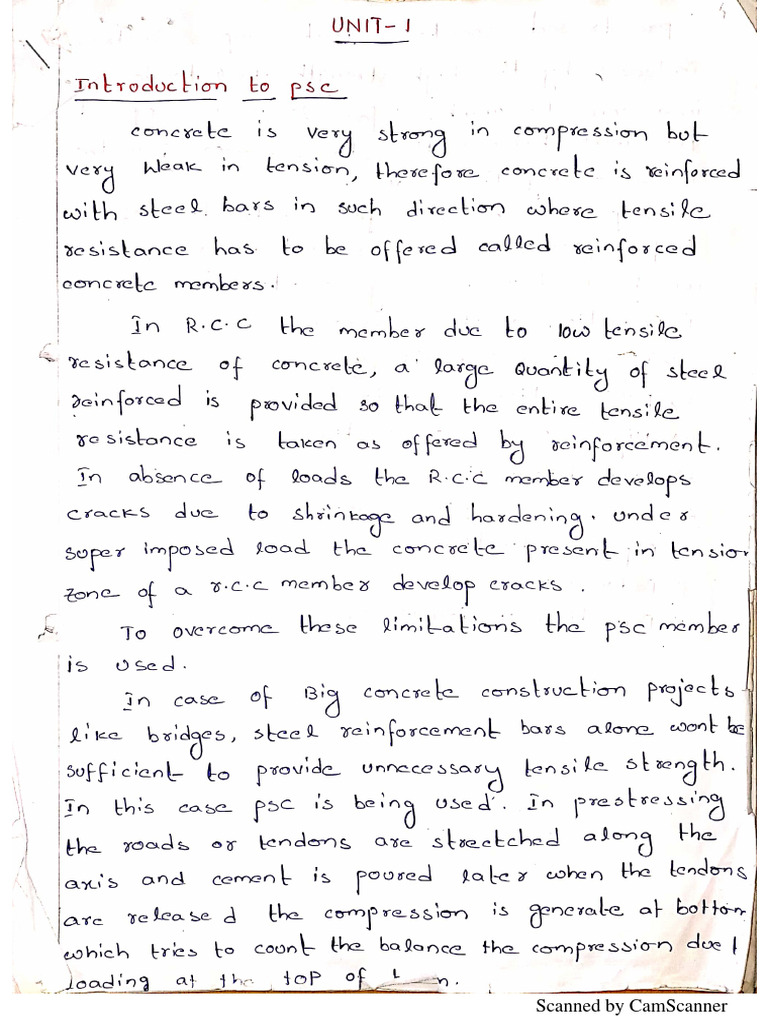 UNIT-1
Introduction to psc
concrete is very strong in compression but
very weak in tension, therefore concrete is reinforced
with steel bars in such direction where tensile
resistance has to be offered called reinforced
concrete members.
In R.C.C the member due to low tensile
resistance of concrete, a large quantity of steel
reinforced is provided so that the entire tensile
resistance is taken as offered by reinforcement.
In absence of loads the R.C.C member develops
cracks due to shrinkage and hardening. under
super imposed load the concrete present in tension
zone of a r.c.c member develop cracks.
To overcome these limitations the psc member
is used.
In case of Big concrete construction projects
like bridges, steel reinforcement bars alone wont be
sufficient to provide unnecessary tensile strength.
In this case psc is being used. In prestressing
the roads or tendons are streetched along the
axis and cement is poured later when the tendons
are released the compression is generate at bottom
which tries to count the balance the compression due
loading at the top of
Scanned by CamScanner